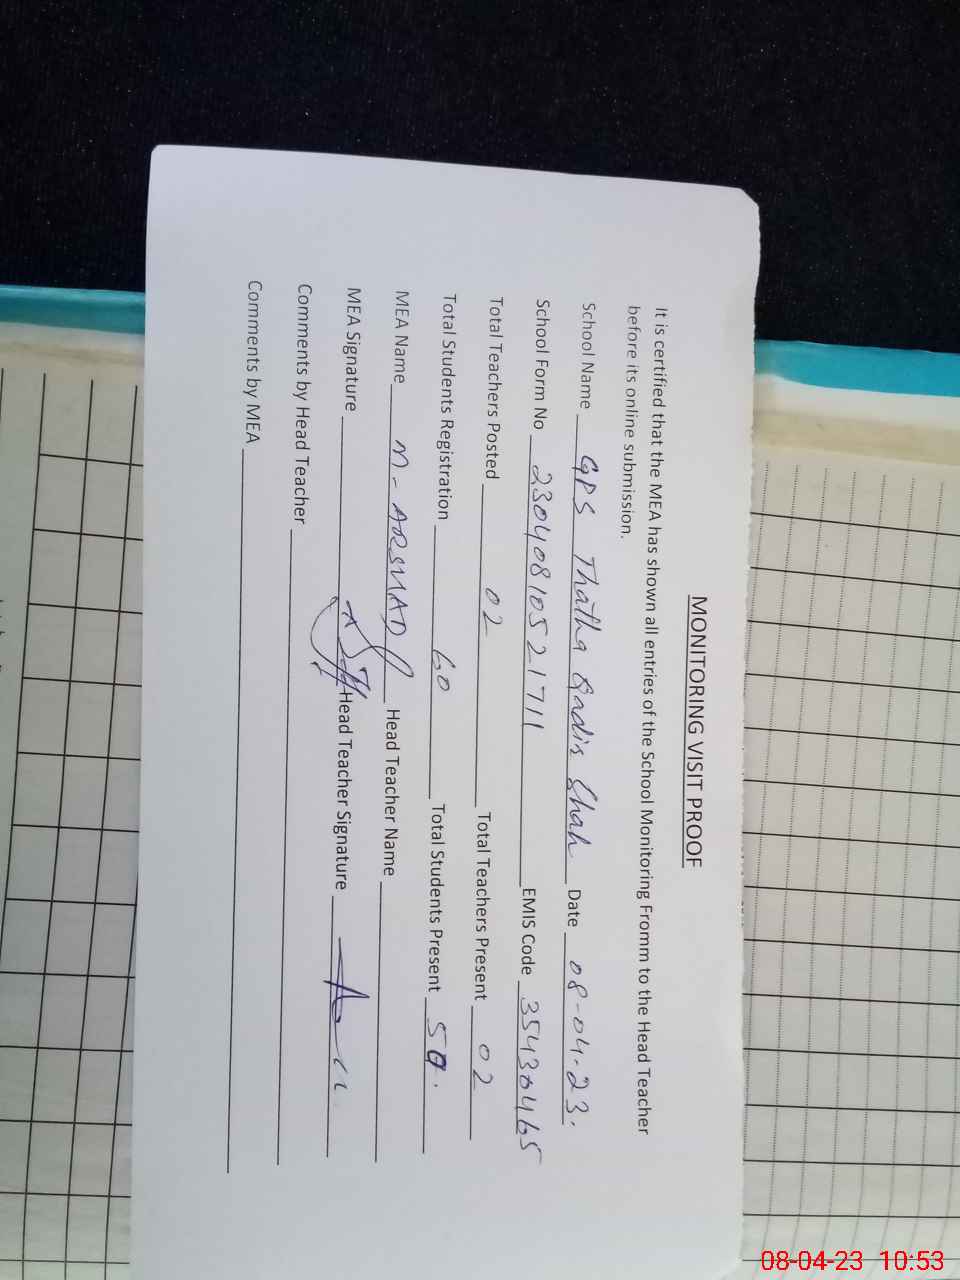 MONITORING VISIT PROOF
It is certified that the MEA has shown all entries of the School Monitoring Fromm to the Head Teacher
before its online submission.
School Name GPS Thatha Qadir Shah Date 08-04-23.
School Form No 2304081052171 EMIS Code 35430465
Total Teachers Posted 02 Total Teachers Present 02
Total Students Registration 60 Total Students Present
MEA Name M-ARSHAD Head Teacher Name
MEA Signature Head Teacher Signature
Comments by Head Teacher
Comments by MEA
08-04-23 10:53